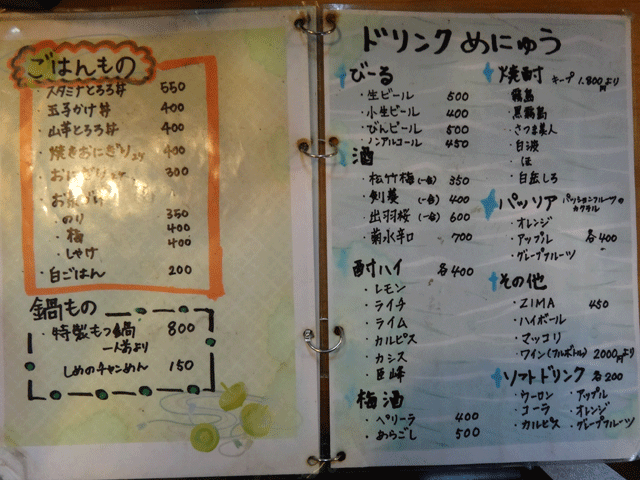 ごはんもの
スタミナとろろ丼 550
・玉子かけ丼 400
・山芋とろろ丼 400
・焼きおにぎり 400
・おにぎり 300
・お茶づけ
・のり 350
・梅 400
・しゃけ 400
・白ごはん 200
鍋もの
・特製もつ鍋 800
一人前より
・しめのチャンめん 150
ドリンクめにゅう
びーる
・生ビール 500
・小生ビール 400
・びんビール 500
・ノンアルコール 450
酒
・松竹梅(一合) 350
・剣菱(一合) 400
・出羽桜(一合) 600
・菊水辛口 700
酎ハイ 各400
・レモン
・ライチ
・ライム
・カルピス
・カシス
・巨峰
梅酒
・ペリーラ 400
・あらごし 500
焼酎 キープ 1.800より
・霧島
・黒霧島
・さつま美人
・白波
・白岳しろ
パッソア パッションフルーツのカクテル
・オレンジ
・アップル 各400
・グレープフルーツ
その他
・ZIMA 450
・ハイボール
・マッコリ
・ワイン(フルボトル) 2000円より
ソフトドリンク 各200
・ウーロン ・アップル
・コーラ ・オレンジ
・カルピス ・グレープフルーツ